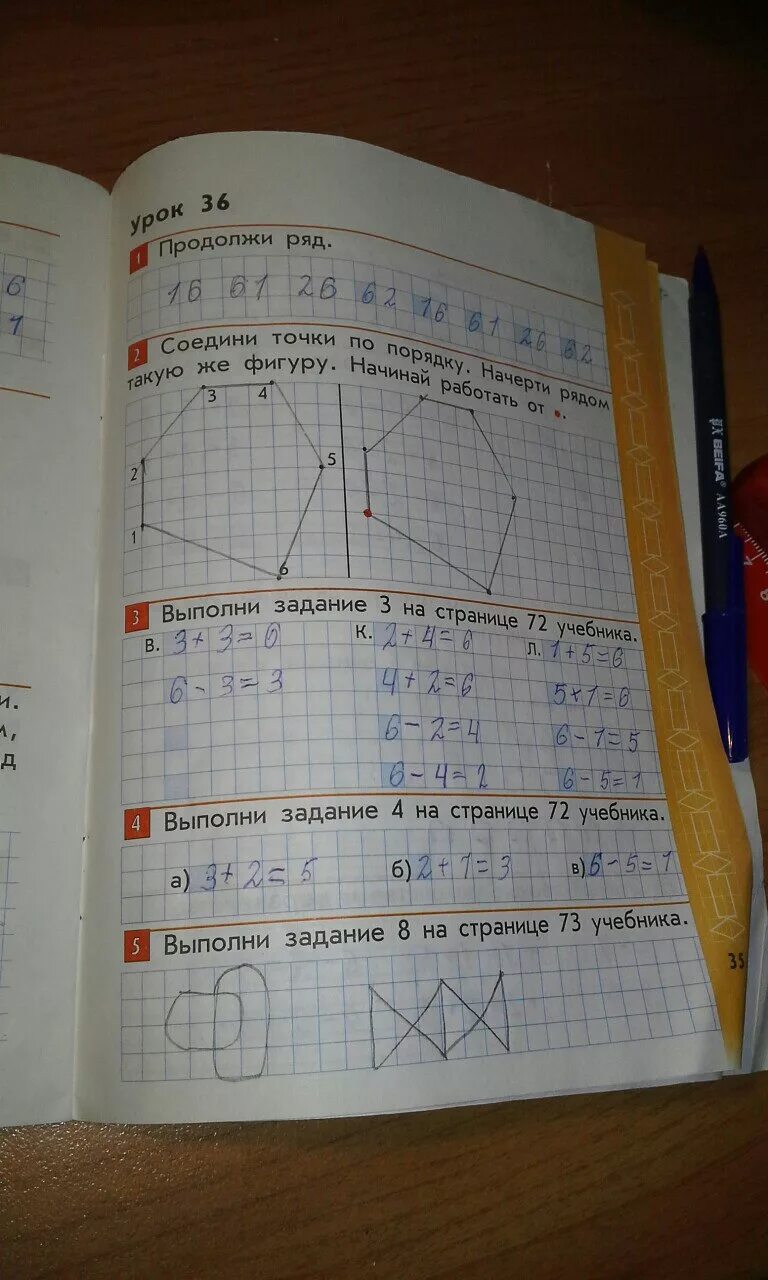 6
1
и.
м,
д
Урок 36
1 Продолжи ряд.
16 61 26 62 16 61 26 62
2 Соедини точки по порядку. Начерти рядом
такую же фигуру. Начинай работать от •.
3 4
2 5
1
6
3 Выполни задание 3 на странице 72 учебника.
В. 3+3=6 К. 2+4=6 Л. 1+5=6
6-3=3 4+2=6 5+1=6
6-2=4 6-1=5
6-4=2 6-5=1
4 Выполни задание 4 на странице 72 учебника.
а) 3+2=5 б) 2+1=3 в) 6-5=1
5 Выполни задание 8 на странице 73 учебника.
35
BEIFA® AA960A